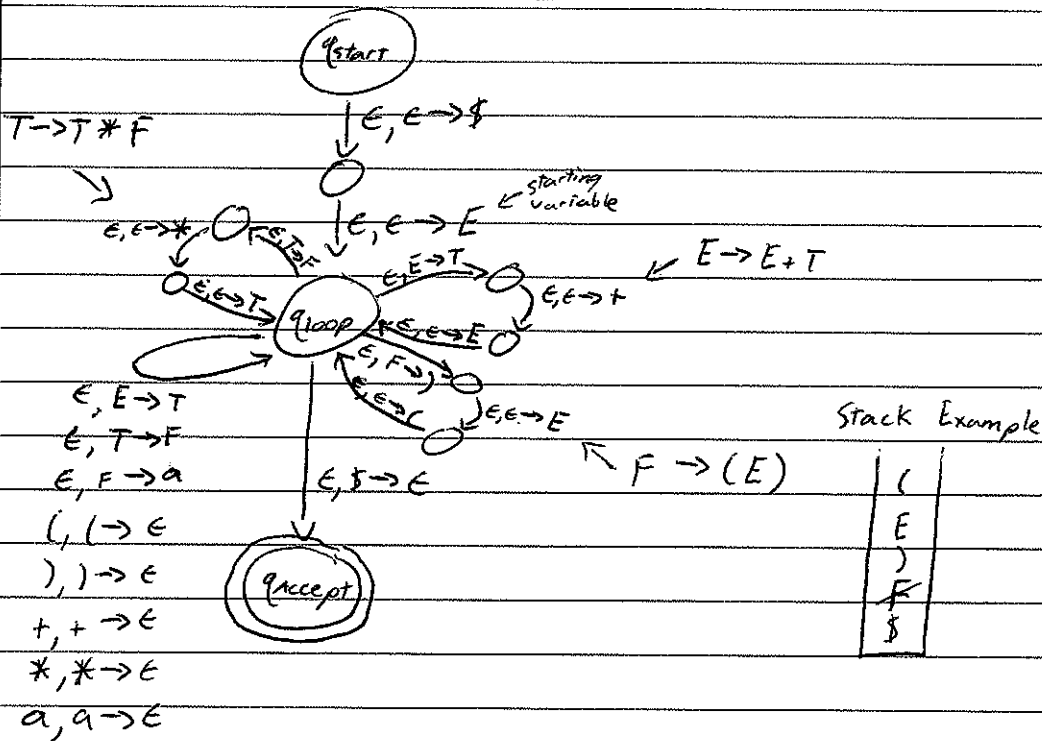 qstart
ϵ, ϵ→$
T→T * F
starting
variable
ϵ, ϵ→E
ϵ, ϵ→*
ϵ, T→F
ϵ, E→T
E→E+T
ϵ, ϵ→T
ϵ, ϵ→+
qloop
ϵ, ϵ→E
ϵ, F→)
ϵ, ϵ→(
ϵ, ϵ→E
F→(E)
ϵ, E→T
ϵ, T→F
ϵ, F→a
(, (→ϵ
), )→ϵ
+, +→ϵ
*, *→ϵ
a, a→ϵ
ϵ, $→ϵ
qAccept
Stack Example
(
E
)
F
$